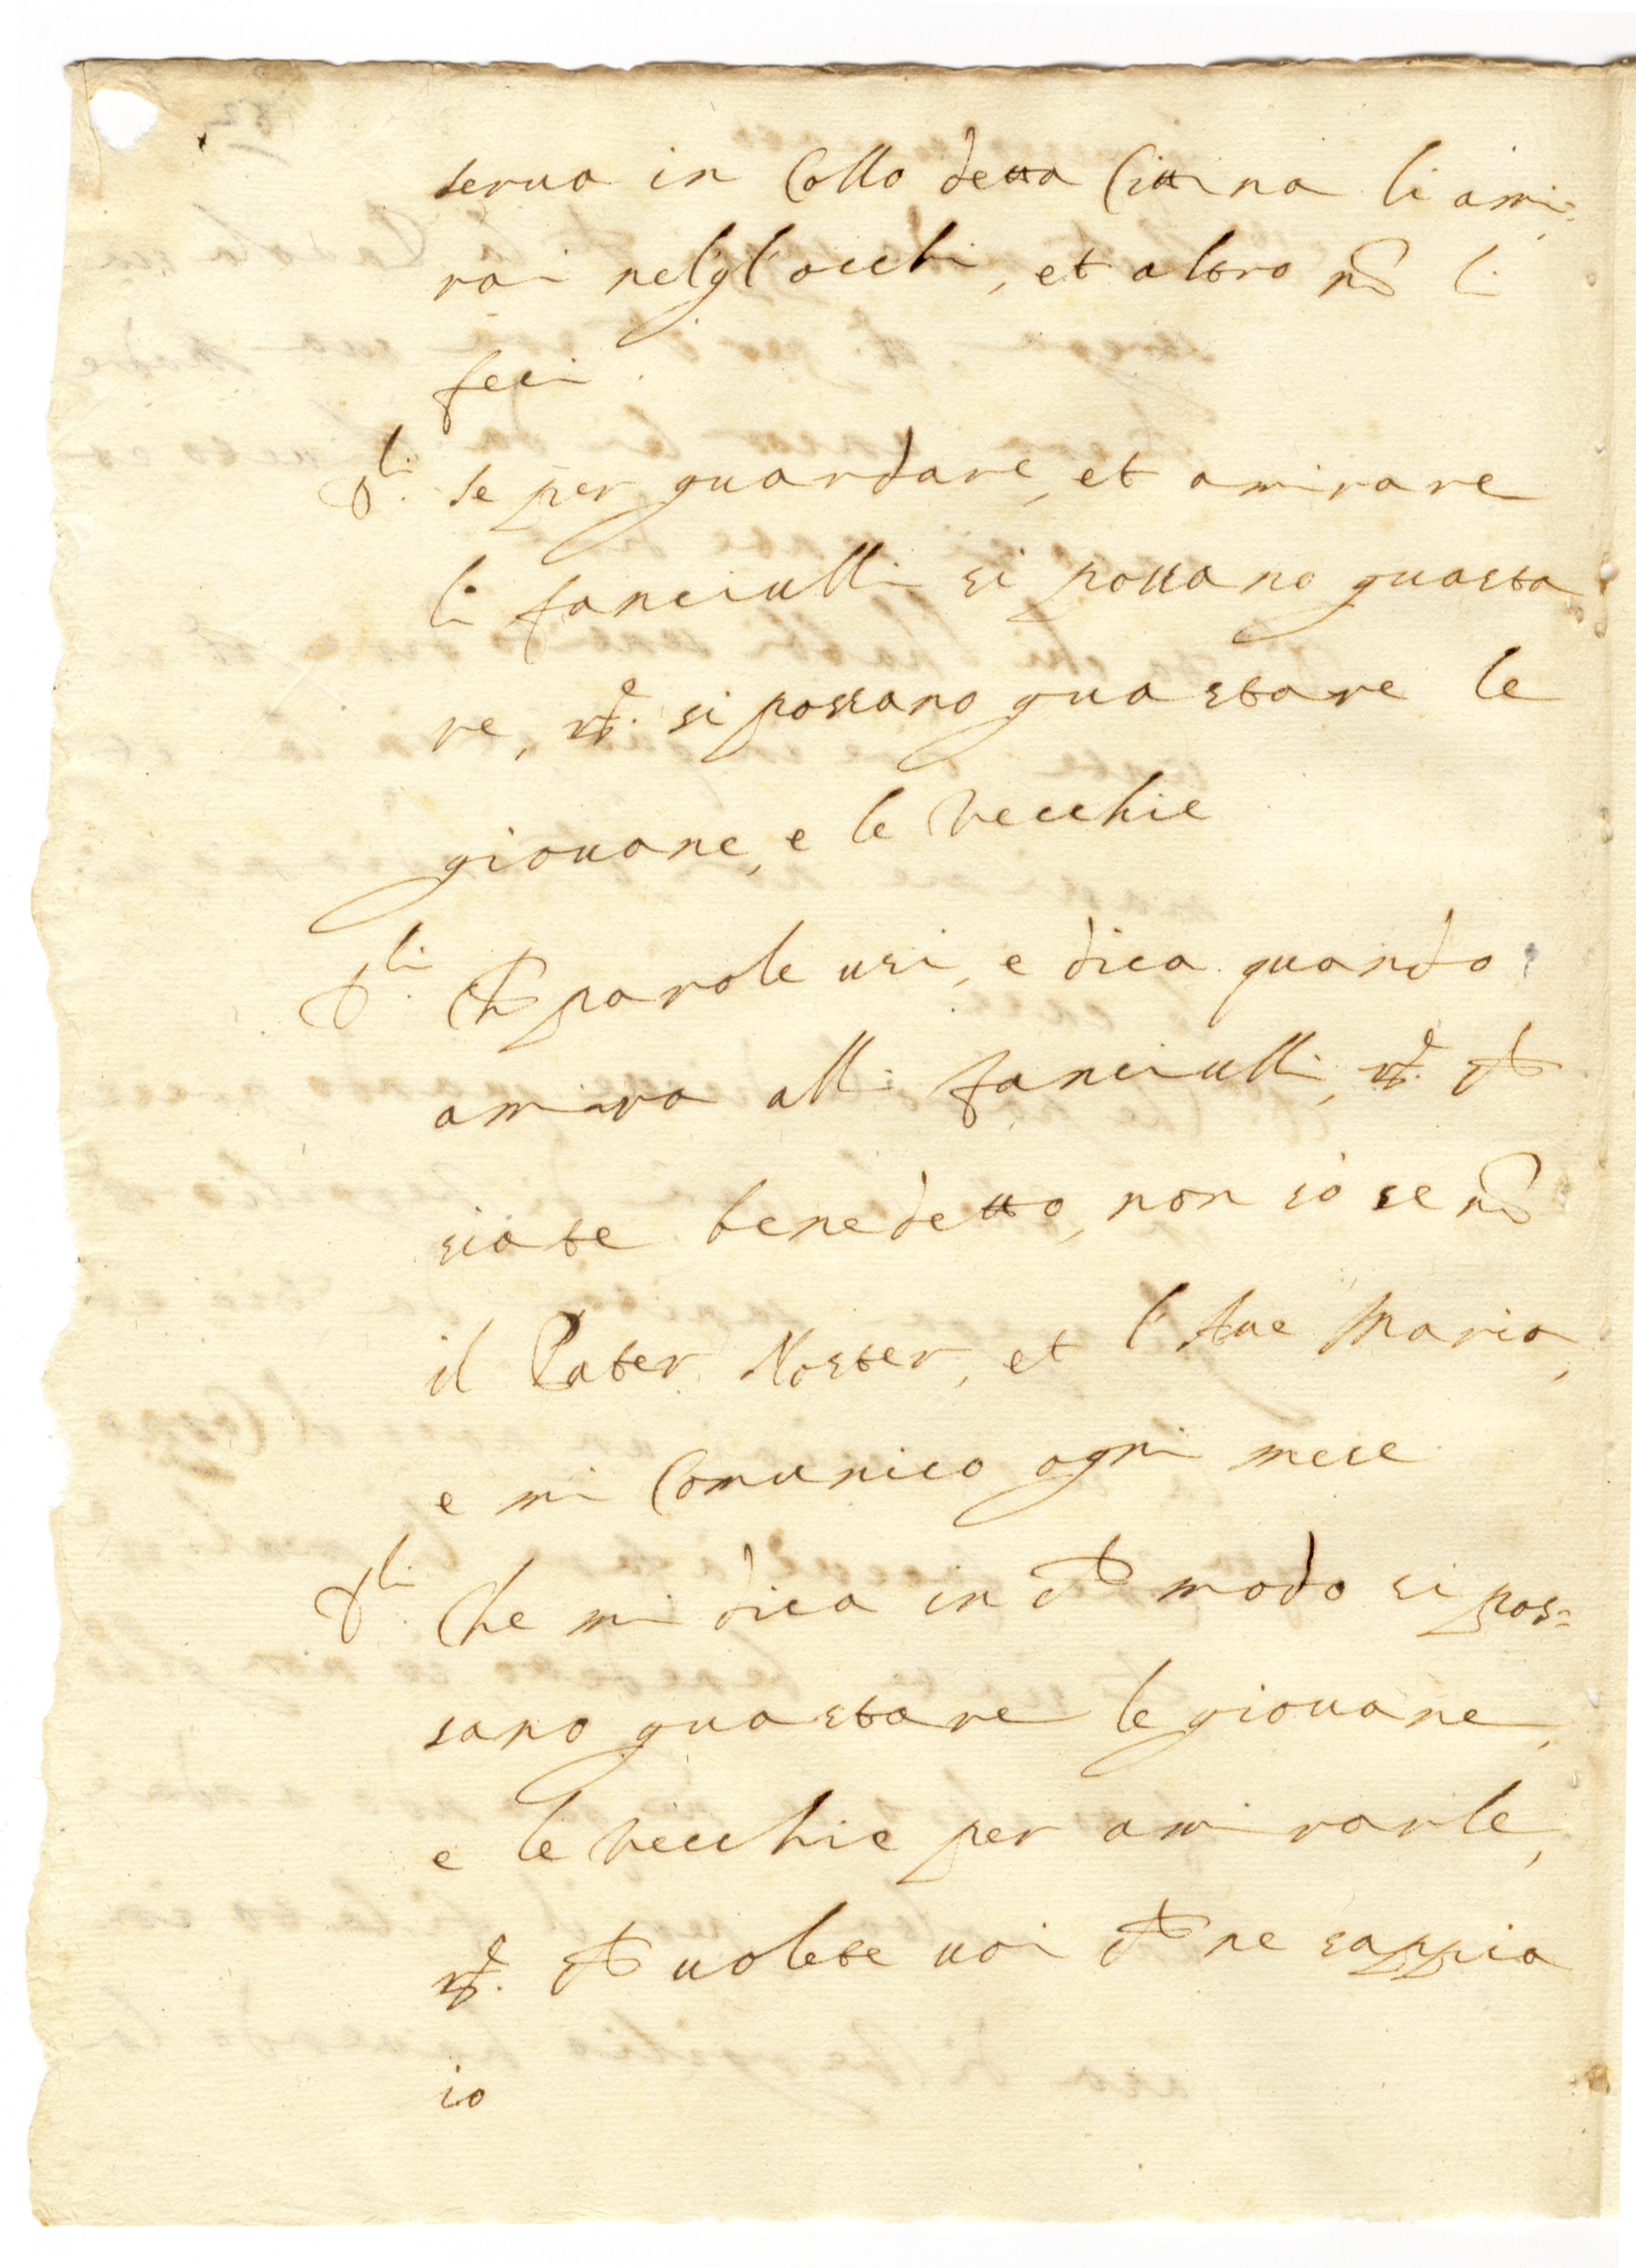 serua in Collo detta Cittina li ami:
rai nelgl'occhi, et altro nō li
feci
Dli. se per guardare, et amirare
li fanciulli si possano guasta
re, rd. si possano guastare le
giouane, e le Vecchie
Dli. Ch parole usi, e dica quando
amira alli fanciulli, rd. ch
siate benedetto, non só se nō
il Pater Noster, et l'Aue Maria,
e mi Comunico ogni mese
Dli. Che mi dica in ch modo si pos=
sano guastare le giouane,
e le Vecchie per amirarle,
rd. ch uolete uoi ch ne sappia
io